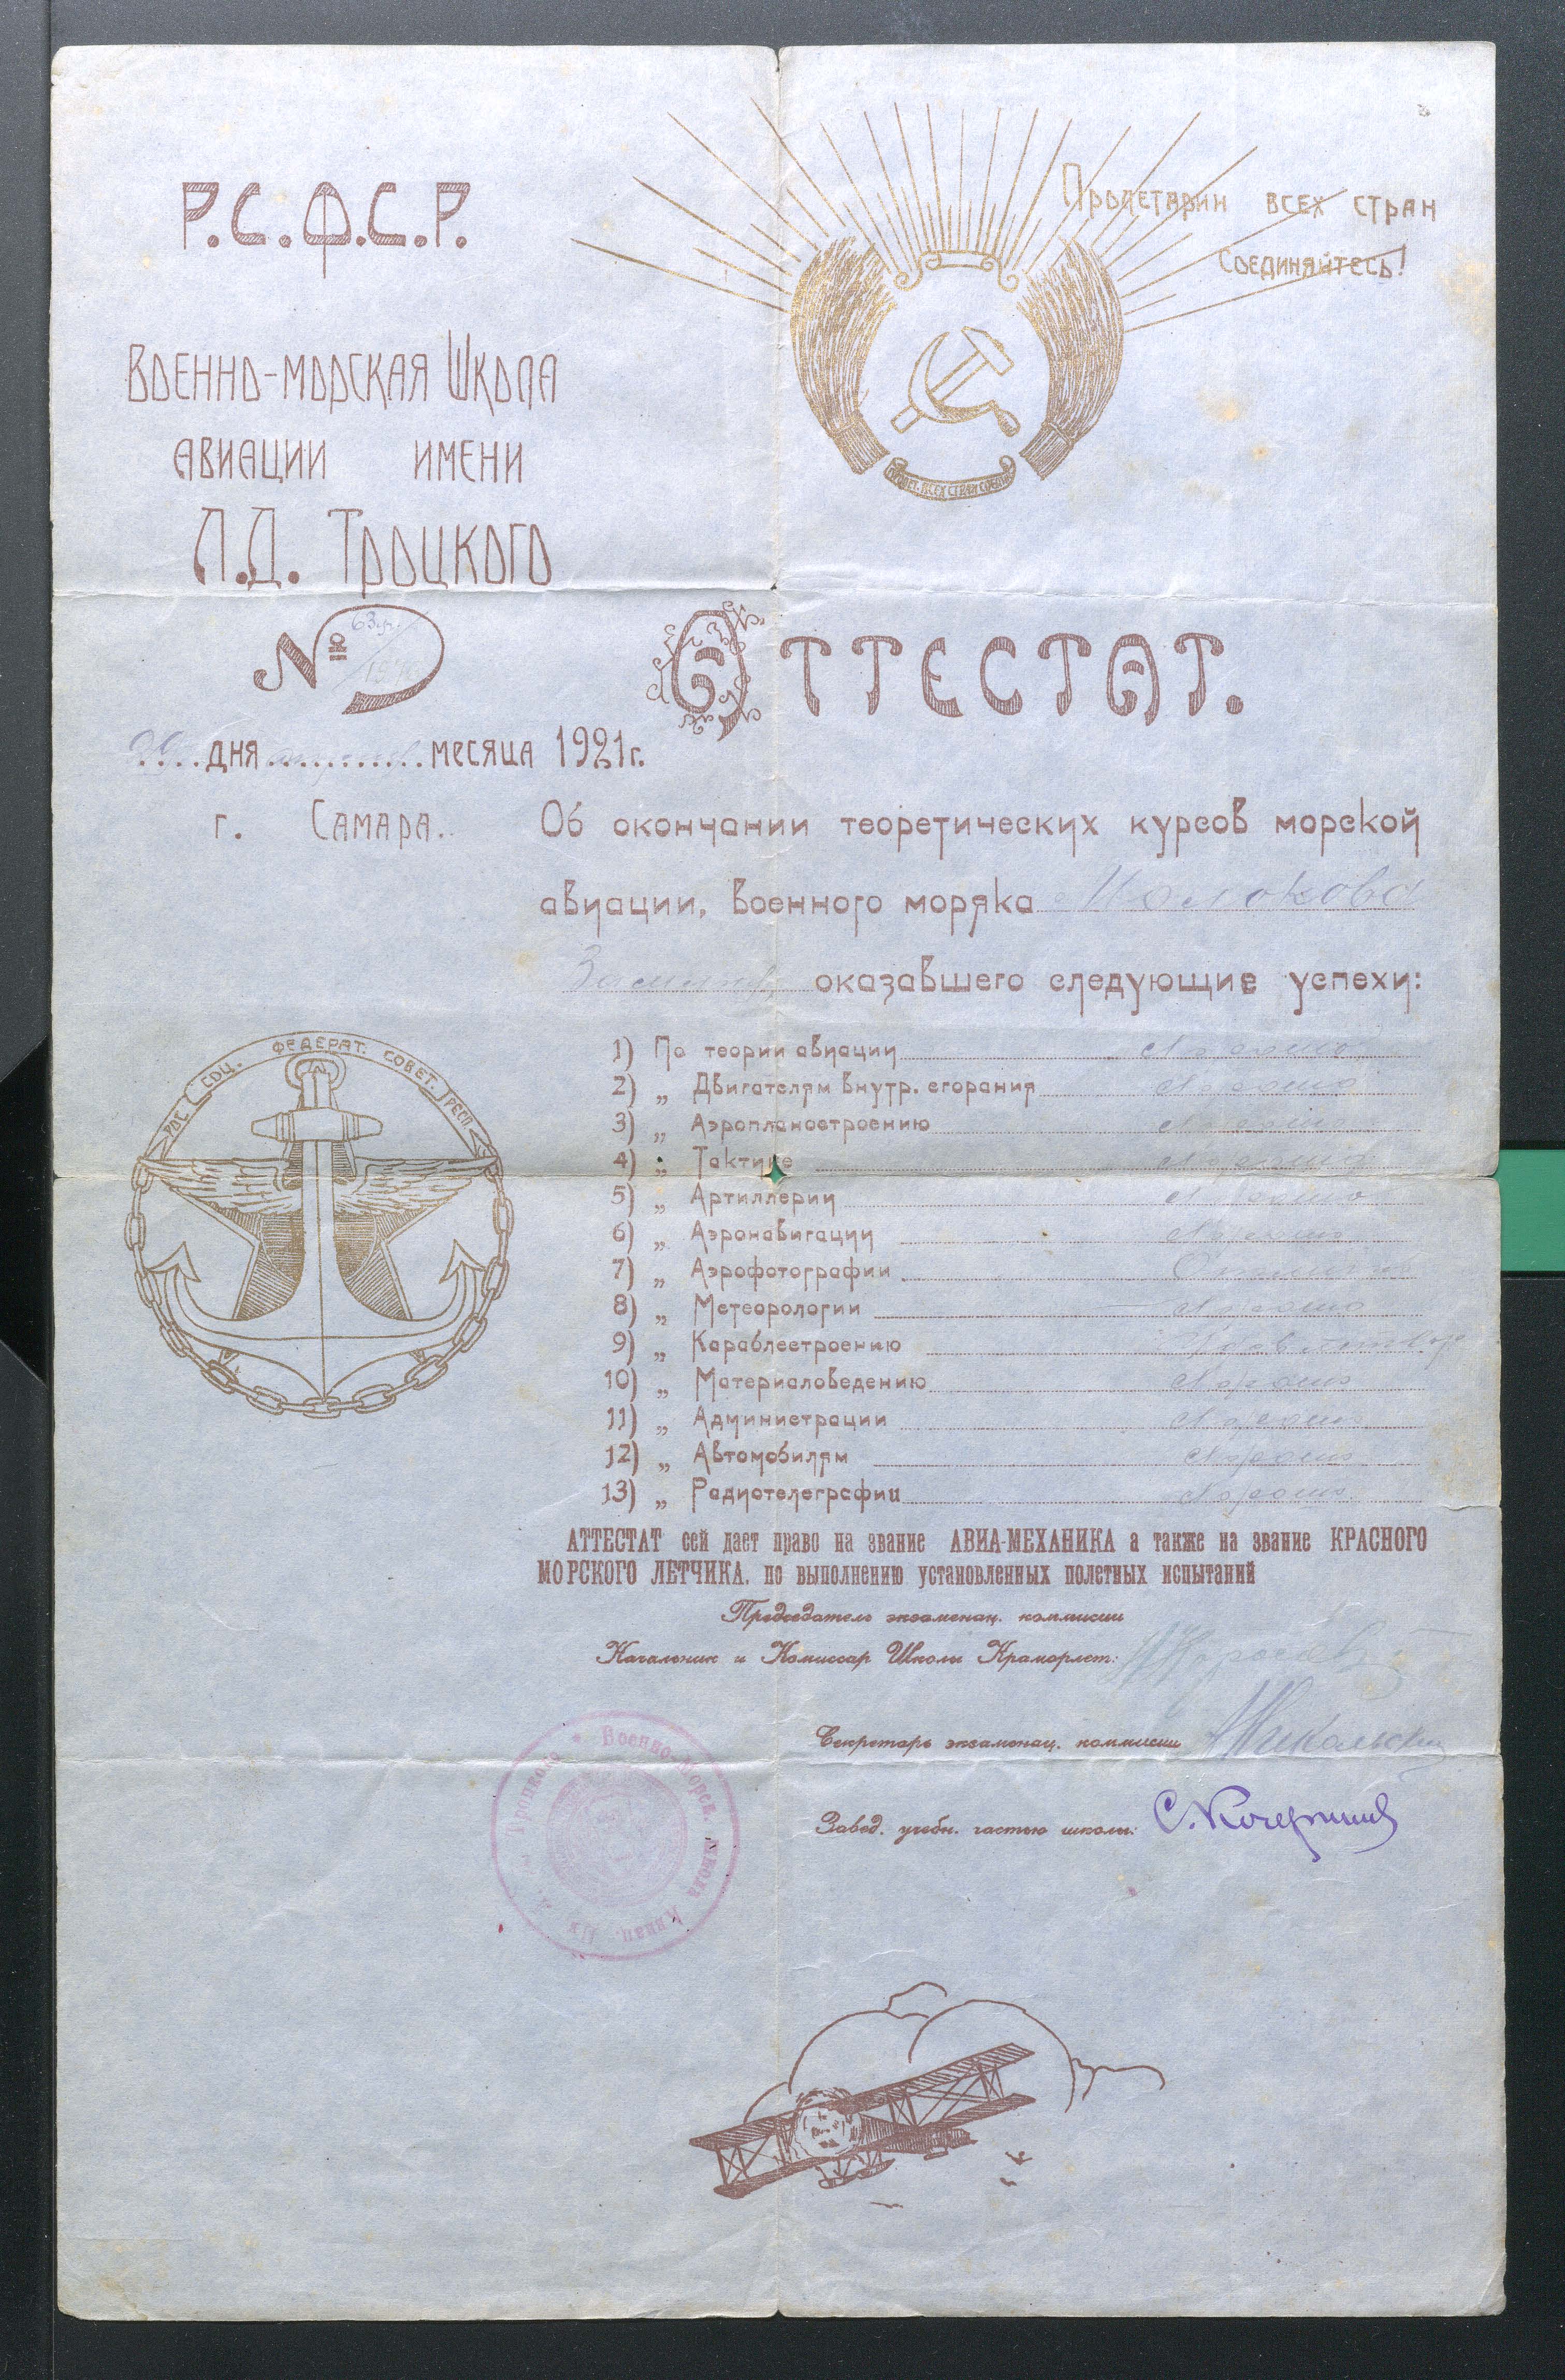 Р.С.Ф.С.Р.
Пролетарии всех стран
Соединяйтесь!
Военно-морская Школа
авиации имени
Л.Д. Троцкого
№ 63
Аттестат.
дня месяца 1921 г.
г. Самара.
Об окончании теоретических курсов морской
авиации, военного моряка Молокова
оказавшего следующие успехи:
РОС. СОЦ. ФЕДЕРАТ. СОВЕТ. РЕСП.
1) По теории авиации хорошо
2) „ Двигателям внутр. сгорания хорошо
3) „ Аэропланостроению хорошо
4) „ Тактике хорошо
5) „ Артиллерии хорошо
6) „ Аэронавигации хорошо
7) „ Аэрофотографии
8) „ Метеорологии хорошо
9) „ Караблестроению Удовлетвор
10) „ Материаловедению хорошо
11) „ Администрации хорошо
12) „ Автомобилям хорошо
13) „ Радиотелеграфии хорошо
АТТЕСТАТ сей дает право на звание АВИА-МЕХАНИКА а также на звание КРАСНОГО
МОРСКОГО ЛЕТЧИКА. по выполнению установленных полетных испытаний
Председатель экзаменац. коммисии
Начальник и Комиссар Школы Краморлет:
Секретарь экзаменац. коммисии Никольский
Завед. учебн. частью школы: С.
Военно-Морск. Школа Авиац. Троцкого